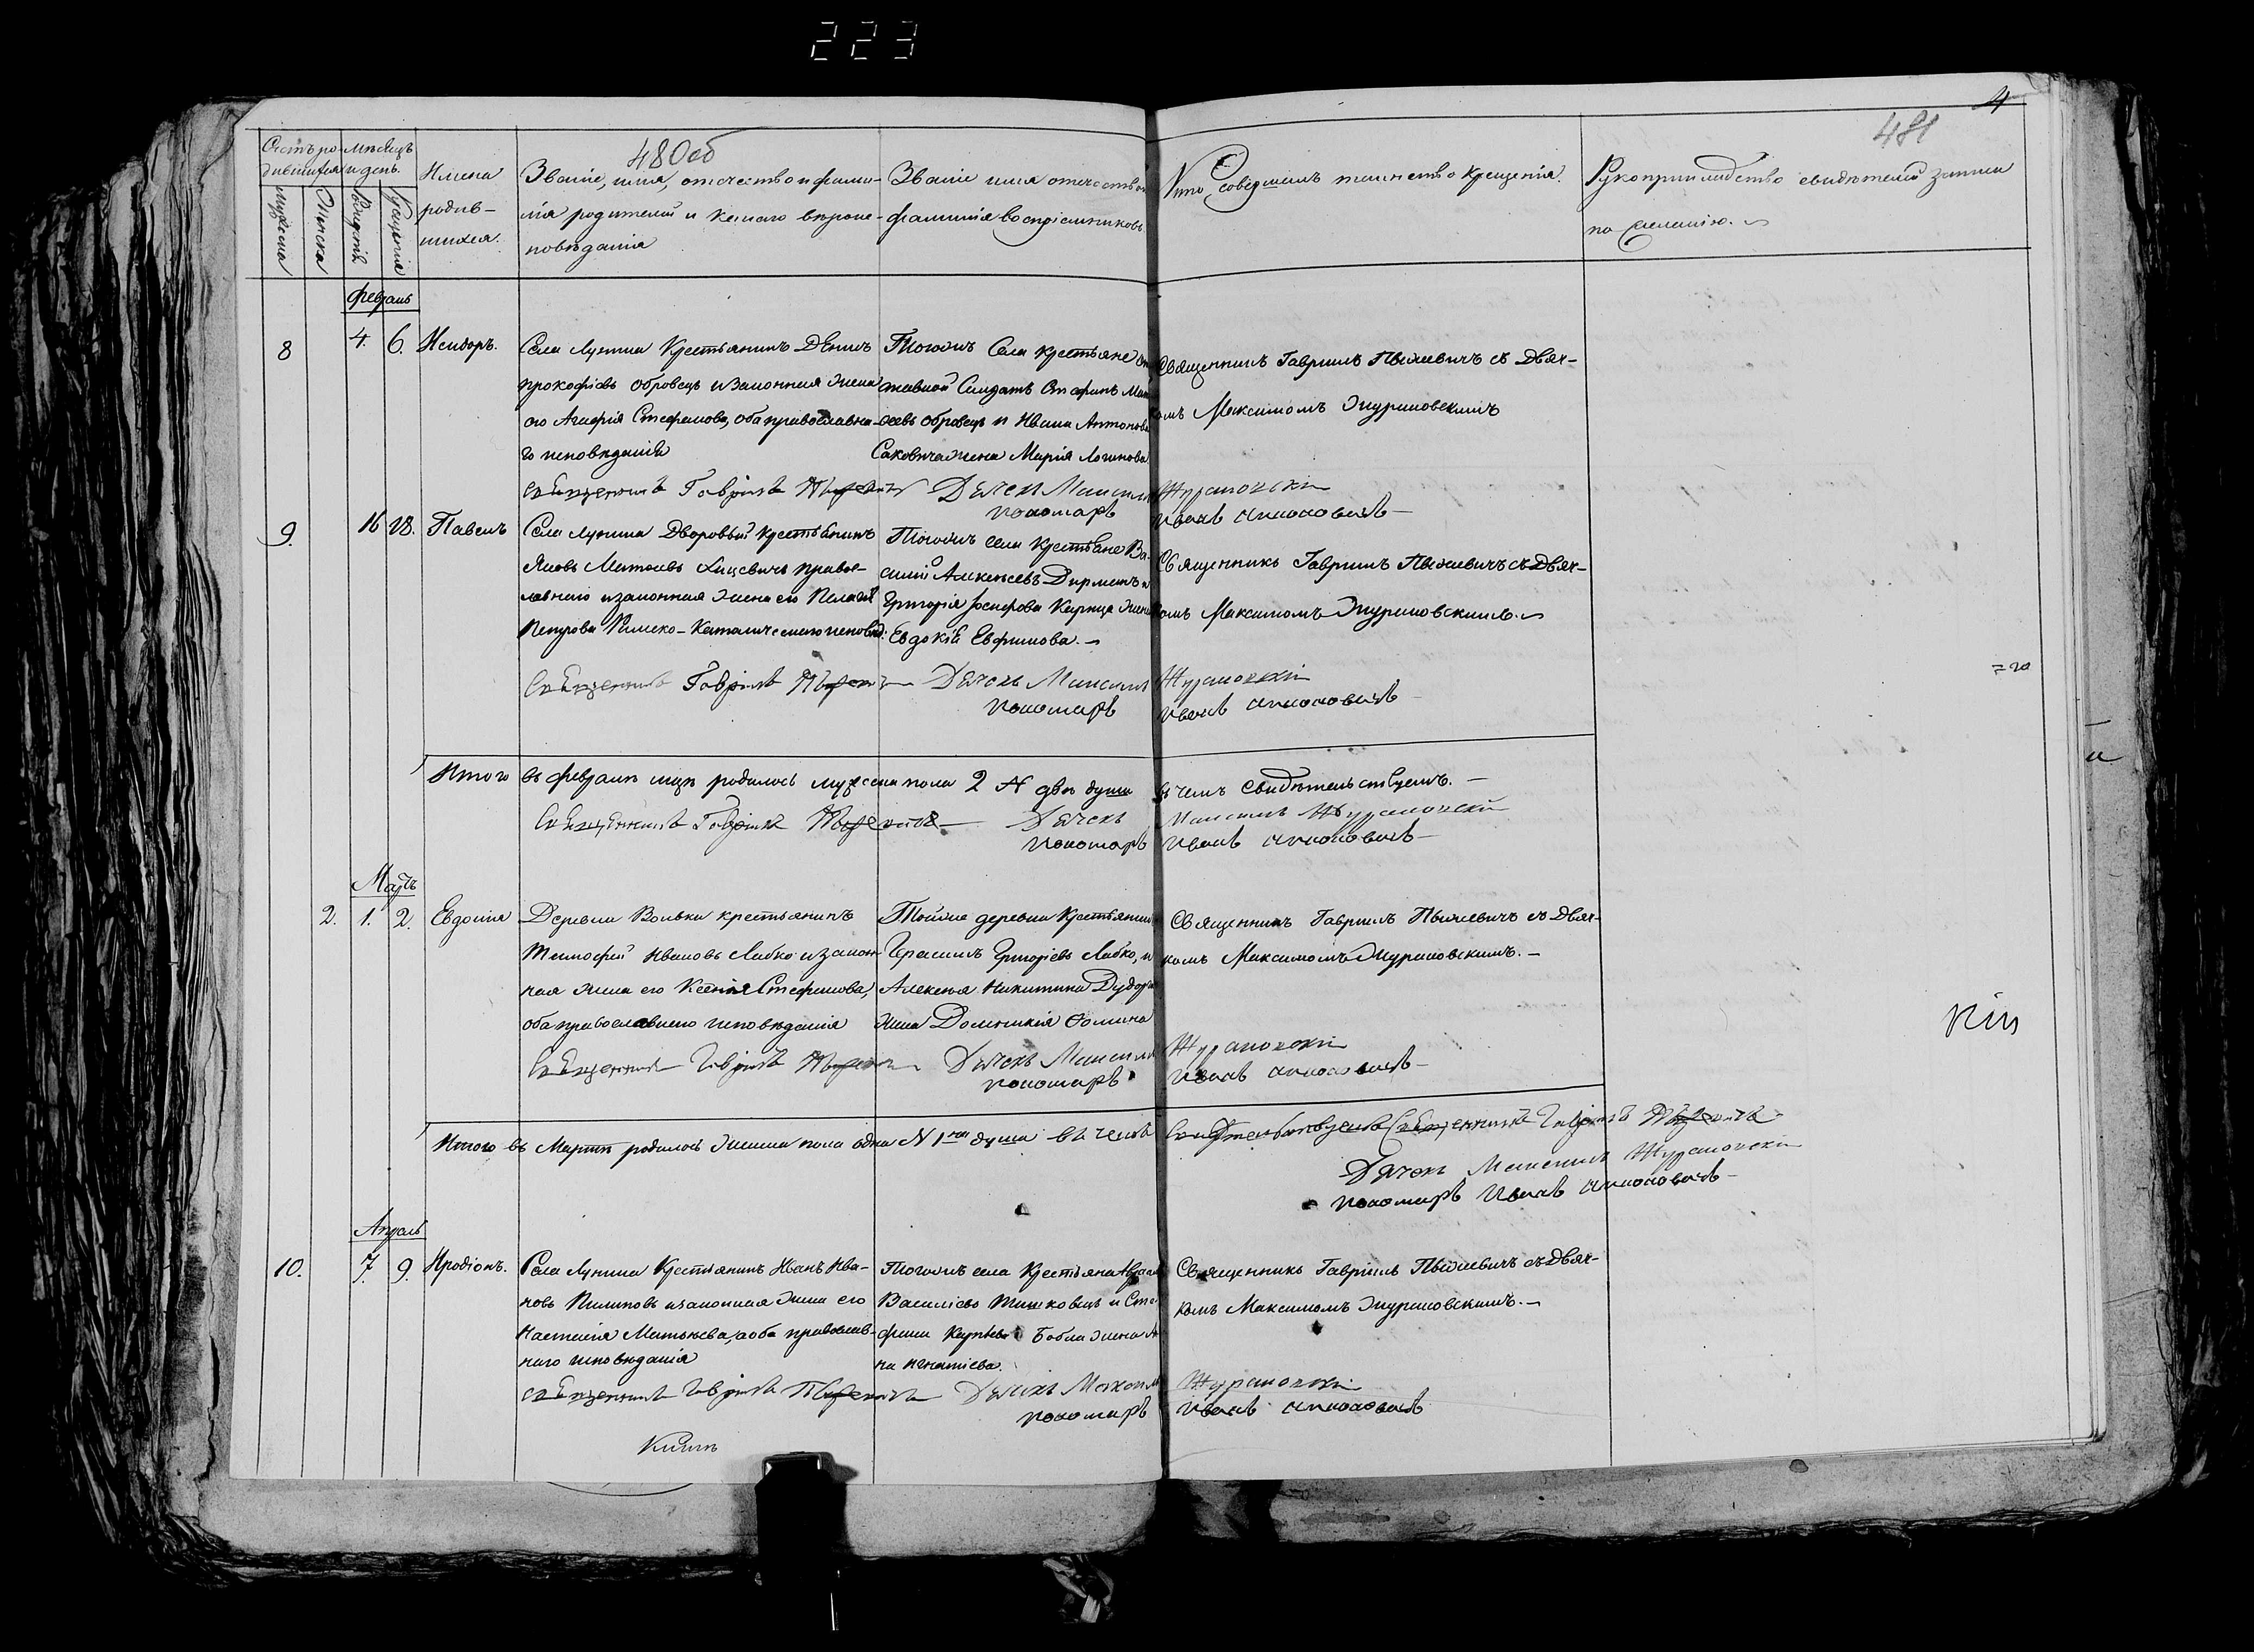 223
4
480об
481
Счетъ ро-
дившихся
мѣсяцъ
и день.
мужеска
Женска
рожденія
крещенія
Имена
родив-
шихся.
Званіе, имя, отечество и фами-
лія родителей и какого вѣроис-
повѣданія
Званіе имя отечество и
фамилія воспріемниковъ
Кто совершалъ таинство крещенія.
Рукоприкладство свидѣтелей записи
по желанію.
Февраль
8
4. 6.
Исидоръ.
Села Лунина Крестьянинъ Денисъ
Прокофіевъ Обровецъ и законная жена
его Агафія Стефанова, оба православна-
го исповѣданія
Тогожъ Села Крестьяне
Солдатъ Стефанъ
Обровецъ и Ивана Антонова
Саковича жена Марія Логинова
Священникъ Гавріилъ Пыжевичъ съ Дьяч-
комъ Максимомъ Журановскимъ
Священникъ Гавріилъ Дьячекъ Максимъ Журановскій
Пономарь Иванъ
9.
16 28.
Павелъ
Села Лунина Дворовый Крестьянинъ
Яковъ Матѳеевъ Хацевичъ правос-
лавнаго и законная жена его Пелагія
Петрова Римско-Католическаго исповѣд:
Тогожъ села Крестьяне Ва-
силій Алексѣевъ Дирманъ и
Григорія Іосифова жена
Евдокія Евфимова.
Священникъ Гавріилъ Пыжевичъ съ Дьяч-
комъ Максимомъ Журановскимъ.
Священникъ Гавріилъ Дьячекъ Максимъ Журановскій
Пономарь Иванъ
Итого въ февралѣ мцѣ родилось мужеска пола 2 двѣ души въ чемъ свидѣтельствуемъ.
Священникъ Гавріилъ Дьячекъ Максимъ Журановскій
Пономарь Иванъ
Мартъ
2.
1. 2.
Евдокія
Деревни Вольки крестьянинъ
Тимофей Ивановъ Лабко и закон-
ная жена его Ксенія Стефанова,
оба православнаго исповѣданія
Тойже деревни Крестьянинъ
Герасимъ Григорьевъ Лабко, и
Алексѣя Никитина
жена Доминикія Фомина
Священникъ Гавріилъ Пыжевичъ съ Дьяч-
комъ Максимомъ Журановскимъ.
Священникъ Гавріилъ Дьячекъ Максимъ Журановскій
Пономарь Иванъ
Итого въ Мартѣ родилось женска пола одна N 1 душа въ чемъ свидѣтельствуемъ Священникъ Гавріилъ
Дьячекъ Максимъ Журановскій
Пономарь Иванъ
Апрель
10.
7. 9.
Иродіонъ.
Села Лунина Крестьянинъ Иванъ Ива-
новъ Пилиповъ и законная жена его
Настасія Матвѣева, оба православ-
наго исповѣданія
Тогожъ села Крестьяне
Василіевъ Тишковецъ и Сте-
фана Бобла жена Ан-
на Игнатіева.
Священникъ Гавріилъ Пыжевичъ съ Дьяч-
комъ Максимомъ Журановскимъ.
Священникъ Гавріилъ Дьячекъ Максимъ Журановскій
Пономарь Иванъ